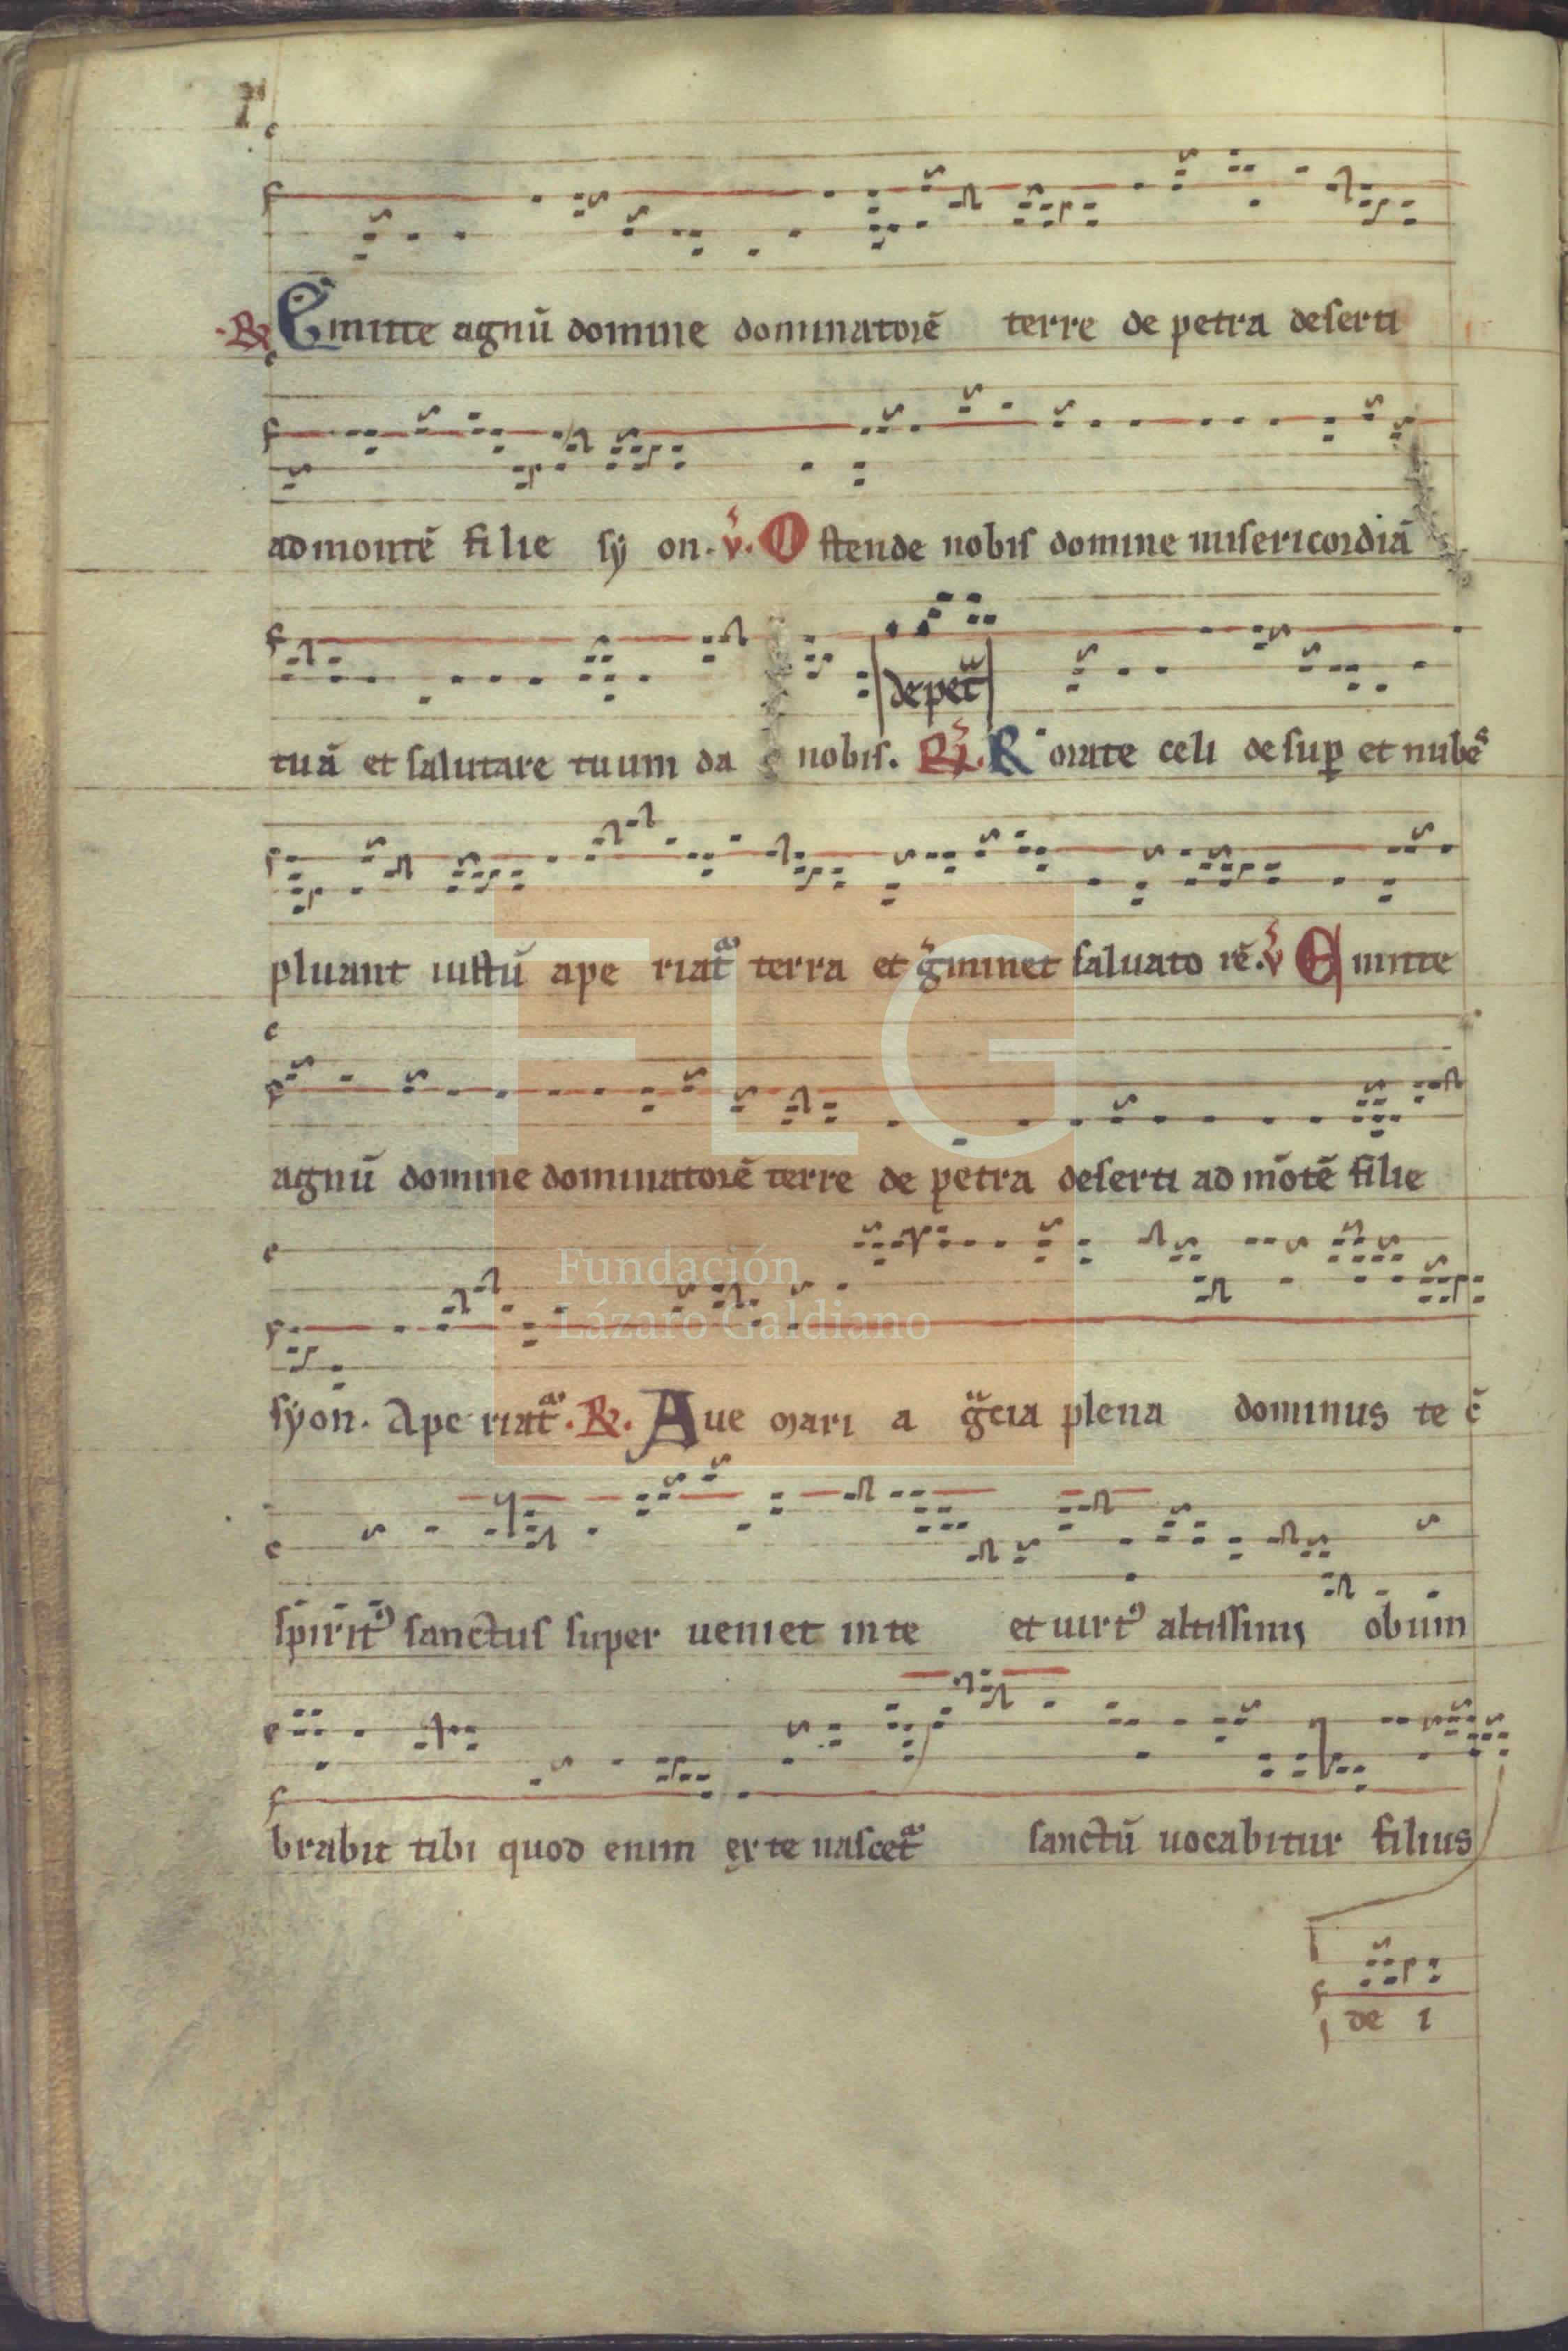 ℟ Emitte agnū domine dominatorē terre de petra deserti
ad montē filie sy on. v̓. Ostende nobis domine misericordiā
de pet
tuā et salutare tuum da nobis. ℟. Rorate celi desup et nubes
pluant iustū ape riat terra et gminet saluato rē. v̓ Emitte
agnū domine dominatorē terre de petra deserti ad mōtē filie
syon. Ape riat. ℟. Aue mari a gcia plena dominus te c̄
spirit᾽ sanctus super ueniet in te et uirt᾽ altissimi obum
brabit tibi quod enim ex te nascet sanctū uocabitur filius
de i
FLG
Fundación
Lázaro Galdiano